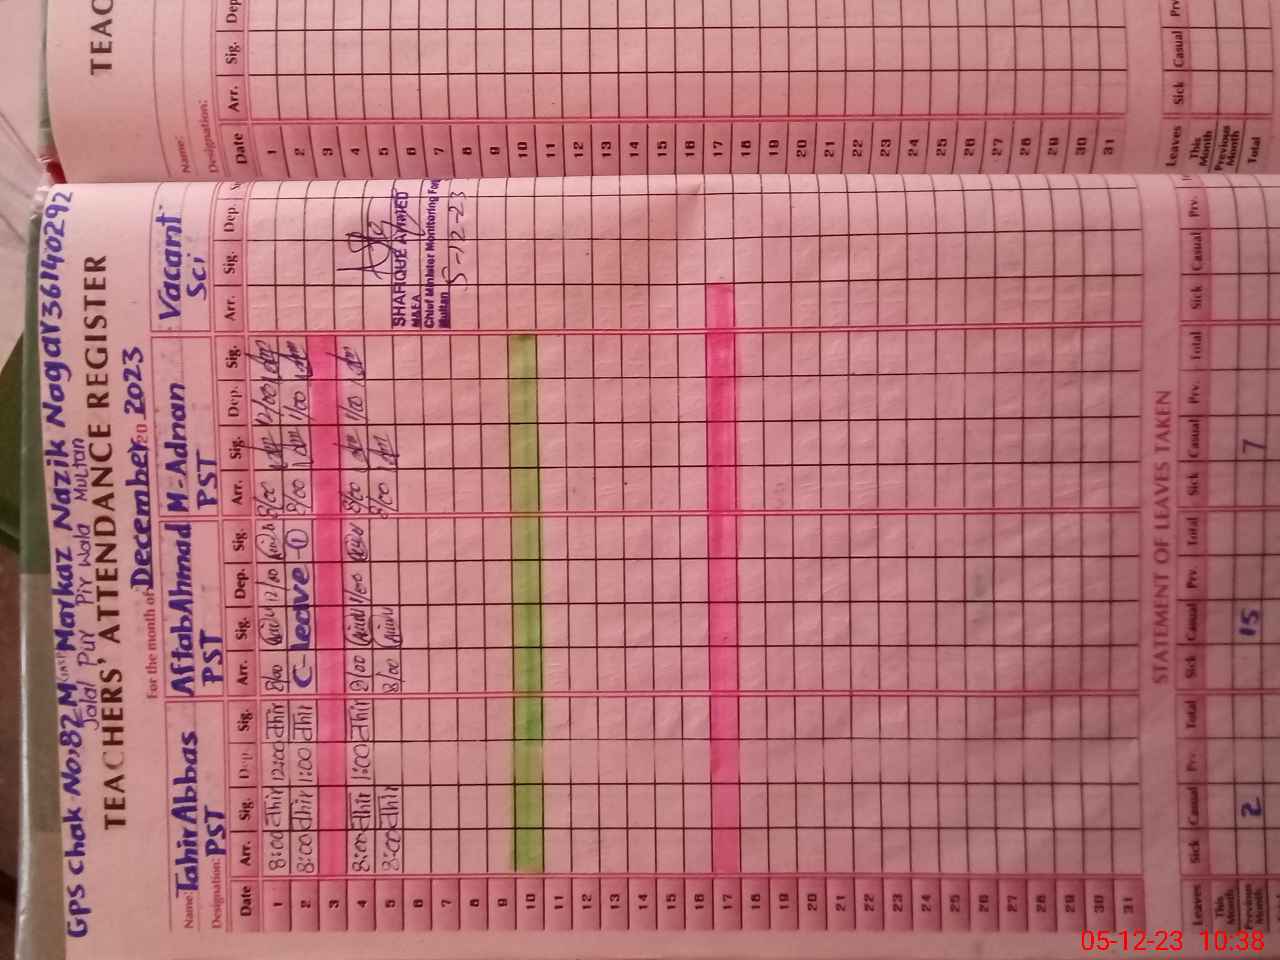 GPS Chak No. 82 M Markaz Nazik Nagar 36140292
Jalal Pur Pir Wala Multan
TEACHERS' ATTENDANCE REGISTER
For the month of December 20 2023
Name: Tahir Abbas Aftab Ahmad M-Adnan Vacant
Designation: PST PST PST Sci
Date Arr. Sig. Dep. Sig. Arr. Sig. Dep. Sig. Arr. Sig. Dep. Sig. Arr. Sig. Dep.
1 8:00 12:00 8/00 12/00 8/00 12/00
2 8:00 1:00 C-leave-① 8/00 1/00
3
4 8:00 1:00 8/00 1/00 8/00 1/00
5 8:00 8/00 8/00
6
7
8
9
10
11
12
13
14
15
16
17
18
19
20
21
22
23
24
25
26
27
28
29
30
31
SHARIQUE AHMED
M&EA
Chief Minister Monitoring For
Multan 5-12-23
STATEMENT OF LEAVES TAKEN
Leaves Sick Casual Prv. Total Sick Casual Prv. Total Sick Casual Prv. Total Sick Casual Prv.
This Month
Previous Month 2 15 7
TEAC
Name:
Designation:
Date Arr. Sig. Dep
1
2
3
4
5
6
7
8
9
10
11
12
13
14
15
16
17
18
19
20
21
22
23
24
25
26
27
28
29
30
31
Leaves Sick Casual Prv
This Month
Previous Month
Total
05-12-23 10:38